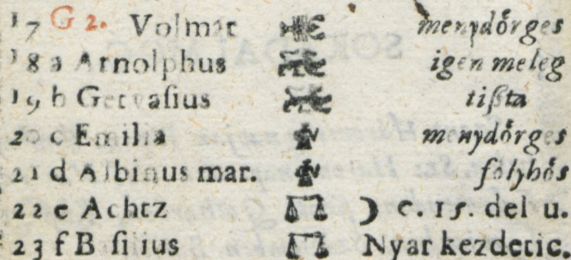 17 G 2. Volmar menydőrges
18 a Arnolphus igen meleg
19 b Gervasius tißta
20 c Emilia menydőrges
21 d Albinus mar. fölyhős
22 e Achtz ☽ e. 15. del u.
23 f B silius Nyar kezdetic.